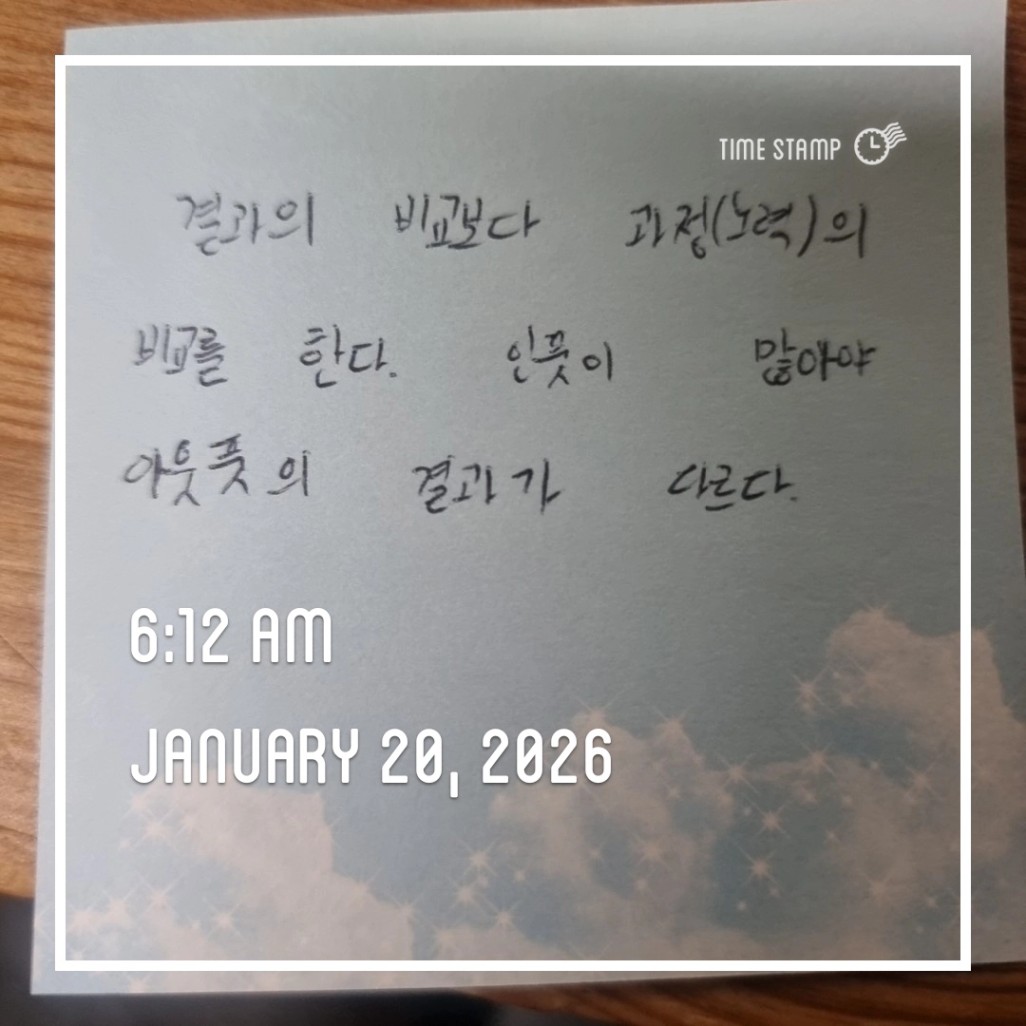 TIME STAMP
결과의 비교보다 과정(노력)의
비교를 한다. 인풋이 많아야
아웃풋의 결과가 다르다.
6:12 AM
JANUARY 20, 2026